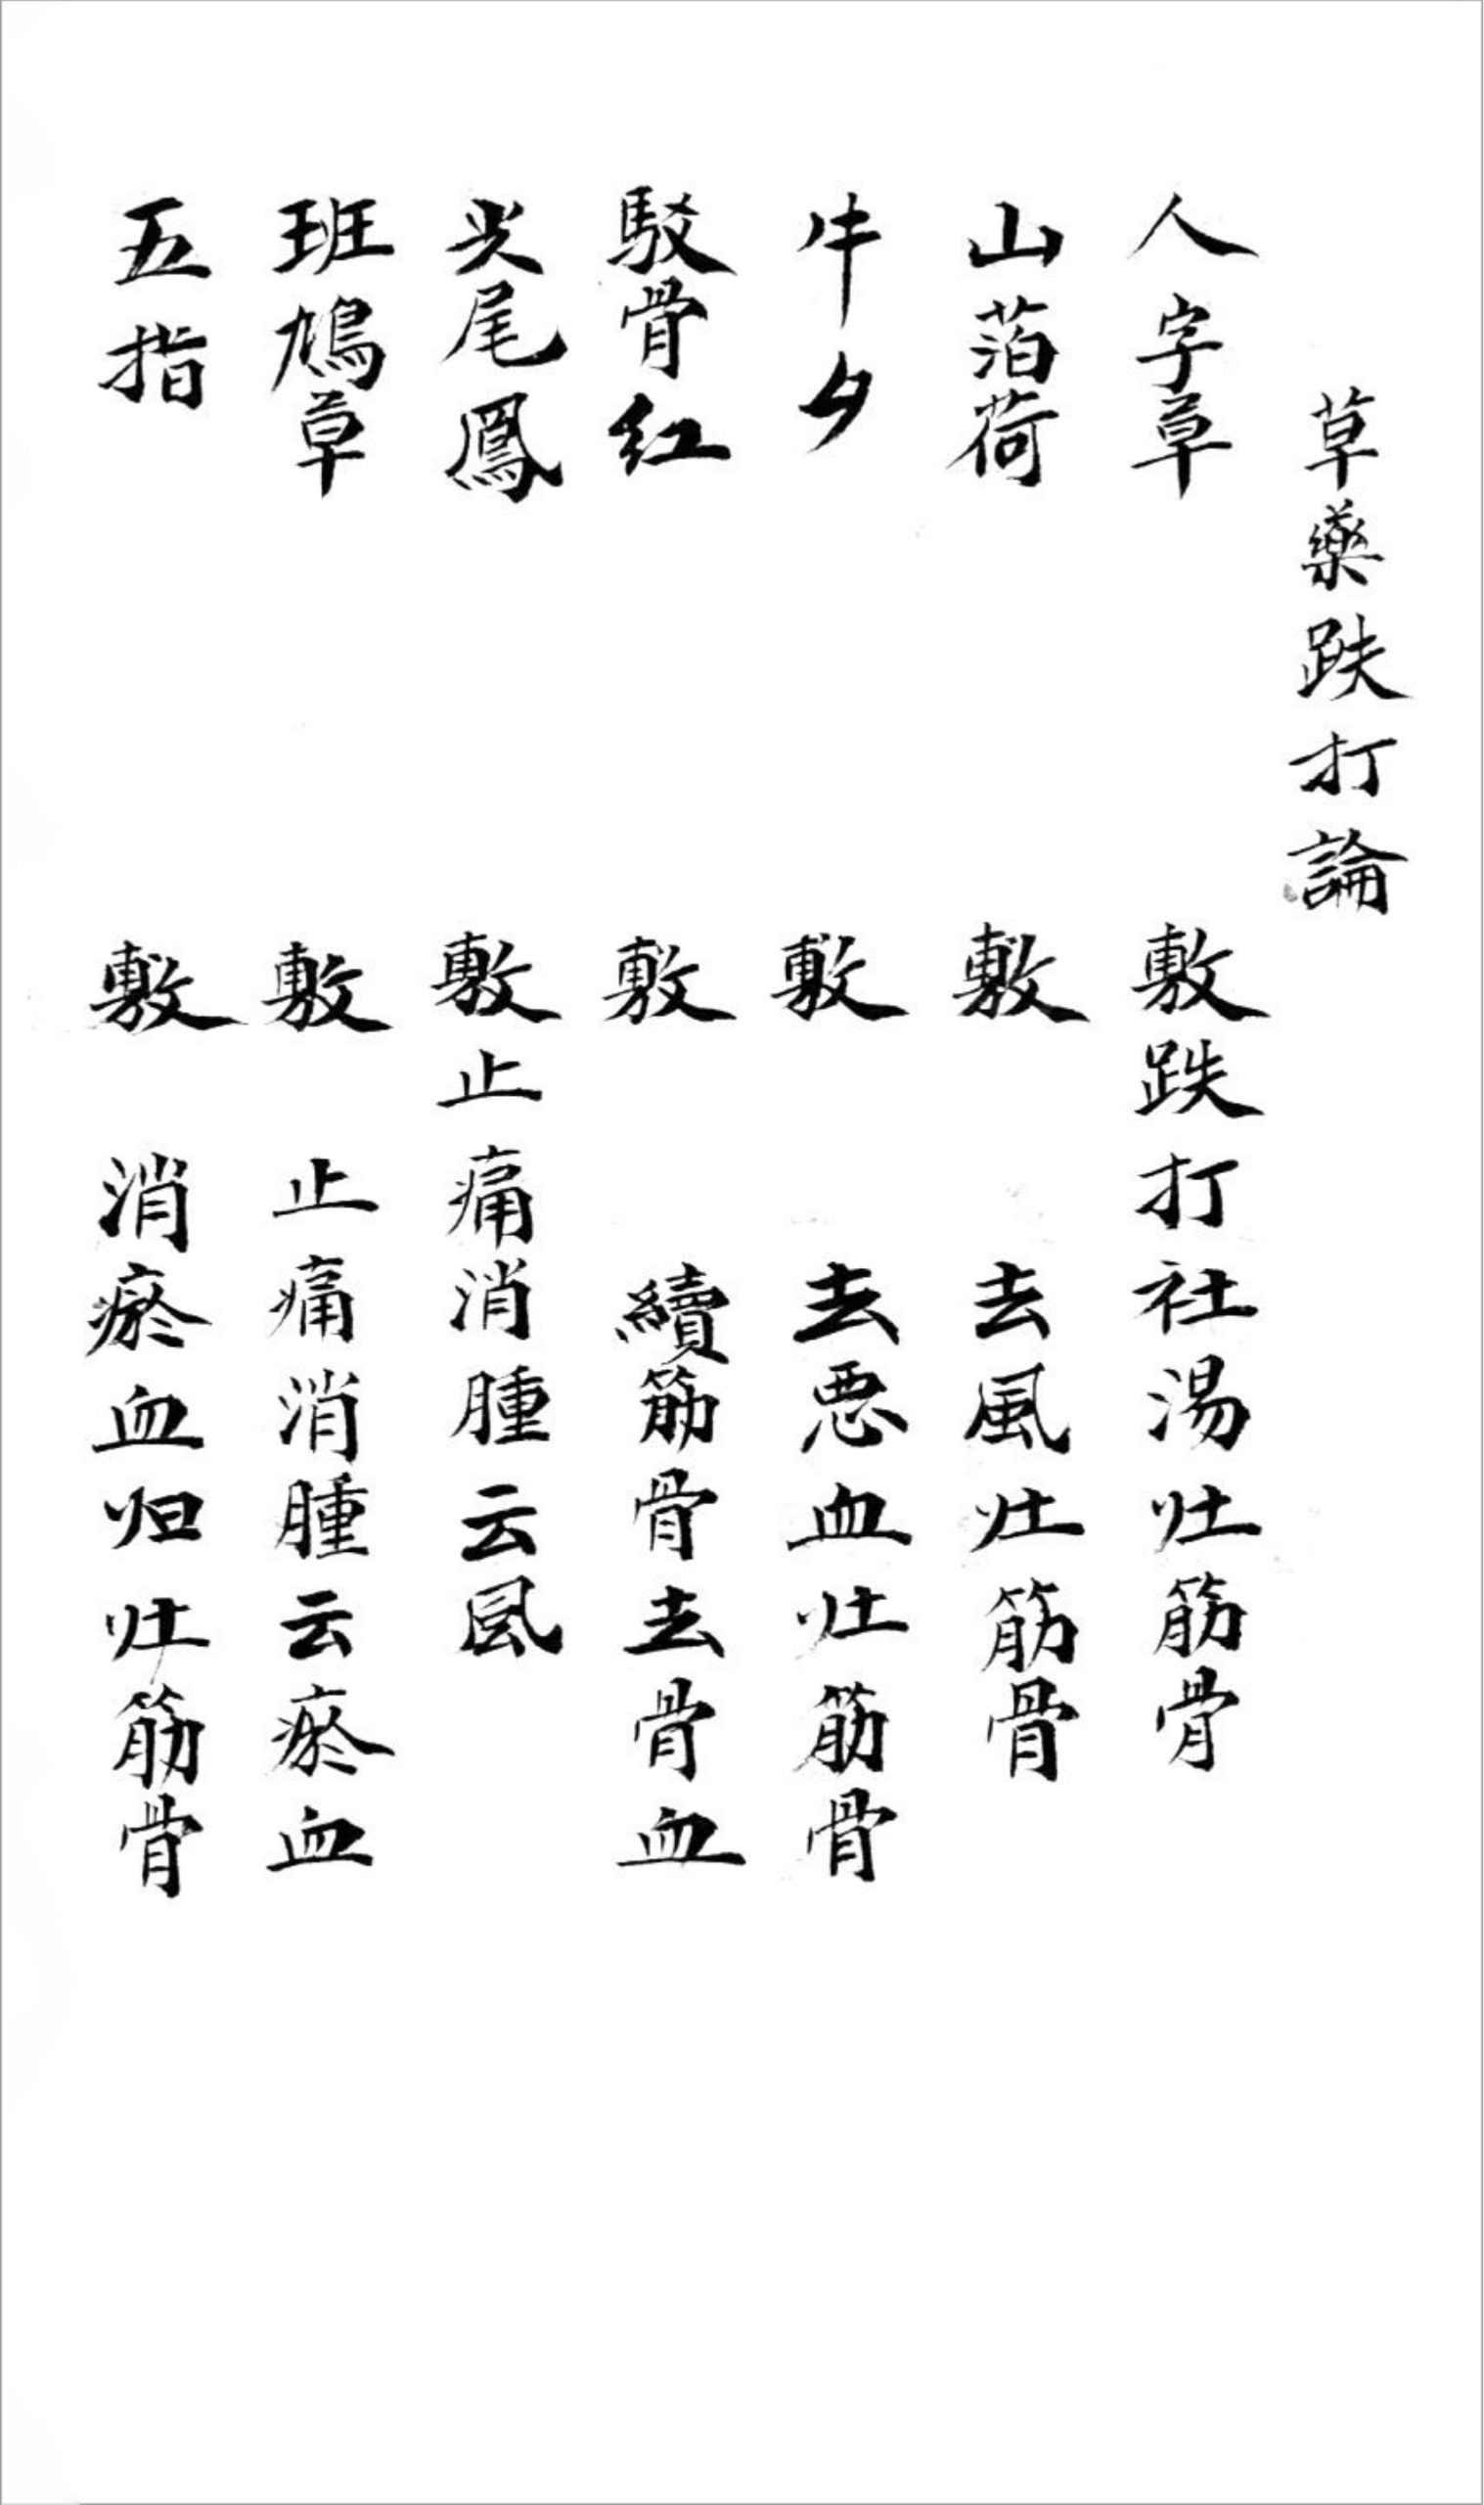 草藥跌打論
人字草 敷跌打社湯壮筋骨
山萡荷 敷 去風壮筋骨
牛夕 敷 去悪血壮筋骨
駁骨红 敷 續筋骨去骨血
尖尾鳳 敷止痛消腫云風
班鳩草 敷 止痛消腫云瘀血
五指 敷 消瘀血归壮筋骨